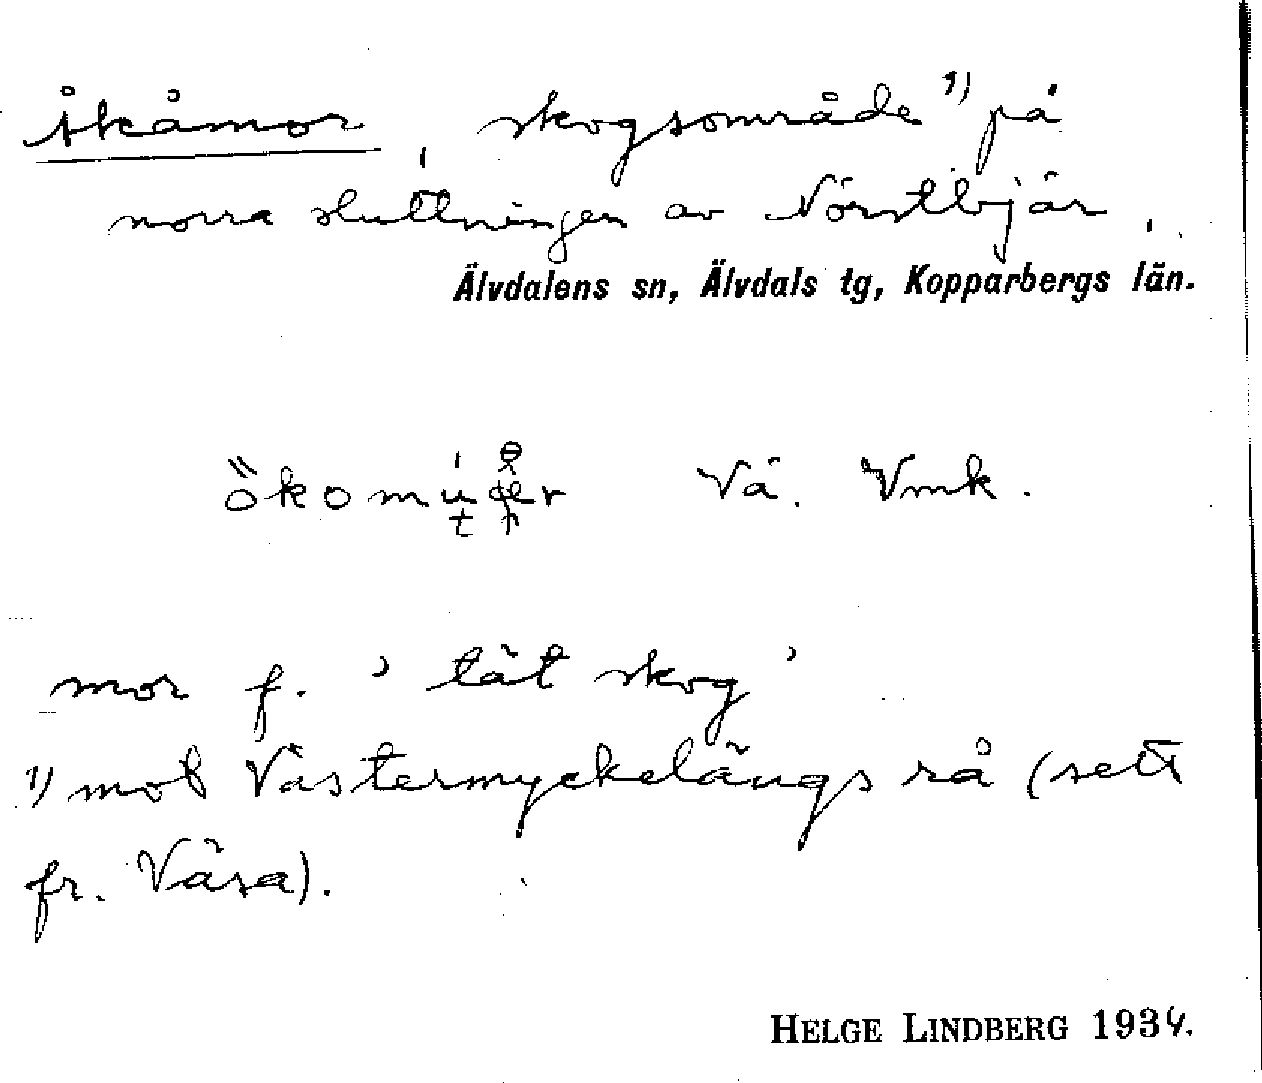 Åkåmor, skogsområde 1) på
norra sluttningen av Nörstbjär.
Älvdalens sn, Älvdals tg, Kopparbergs län.
Vä. Vmk.
mor f. ’tät skog’
1) mot Västermyckelängs rå (sett
fr. Väsa).
HELGE LINDBERG 1934.